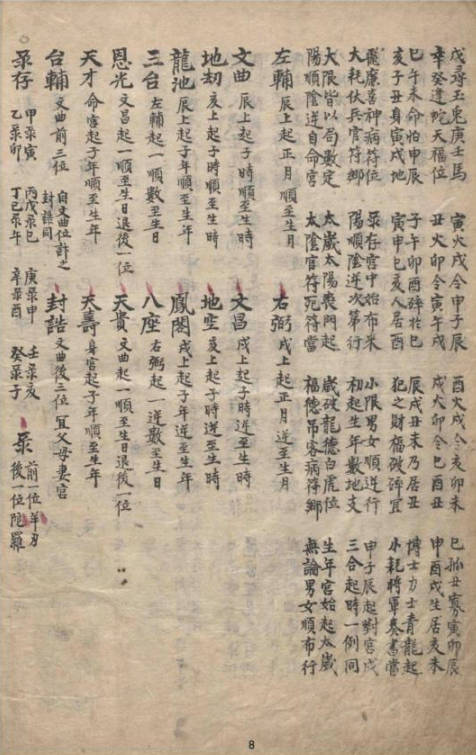 戊尋玉兔庚壬馬 寅火戌令甲子辰 酉火戌令亥卯未 巳孤丑寡寅卯辰
辛癸逢蛇天福位 丑火卯令寅午戌 戌火卯令巳酉丑 申酉戌生居亥未
巳午未命怕申辰 子午卯酉碎於巳 辰戌丑未乃居丑 博士力士青龍起
亥子丑身寅戌地 寅申巳亥人居酉 犯之財福破碎宜 小耗將軍奏書當
飛廉喜神病符位 彔存宮中始布來 小限男女順逆行 甲子辰起對宮戌
大耗伏兵官符鄉 陽順陰逆次第行 初起生年數地支 三合起時一例同
大限皆以局數定 太歲太陽喪門起 歲破龍德白虎位 生年宮始起太歲
陽順陰逆自命宮 太陰官符死符當 福德吊客病符鄉 無論男女順布行
左輔 辰上起正月順至生月 右弼 戌上起正月逆至生月
文曲 辰上起子時順至生時 文昌 戌上起子時逆至生時
地劫 亥上起子時順至生時 地空 亥上起子時逆至生時
龍池 辰上起子年順至生年 鳳閣 戌上起子年逆至生年
三台 左輔起一順數至生日 八座 右弼起一逆數至生日
恩光 文昌起一順至生日退後一位 天貴 文曲起一順至生日退後一位
天才 命宮起子年順至生年 天壽 身宮起子年順至生年
台輔 文曲前三位 自文曲位計之 封誥同 封誥 文曲後三位 宜父母妻宮
彔存 甲彔寅 乙彔卯 丙戊彔巳 丁己彔午 庚彔申 辛彔酉 壬彔亥 癸彔子 彔 前一位羊刃 後一位陀羅
8